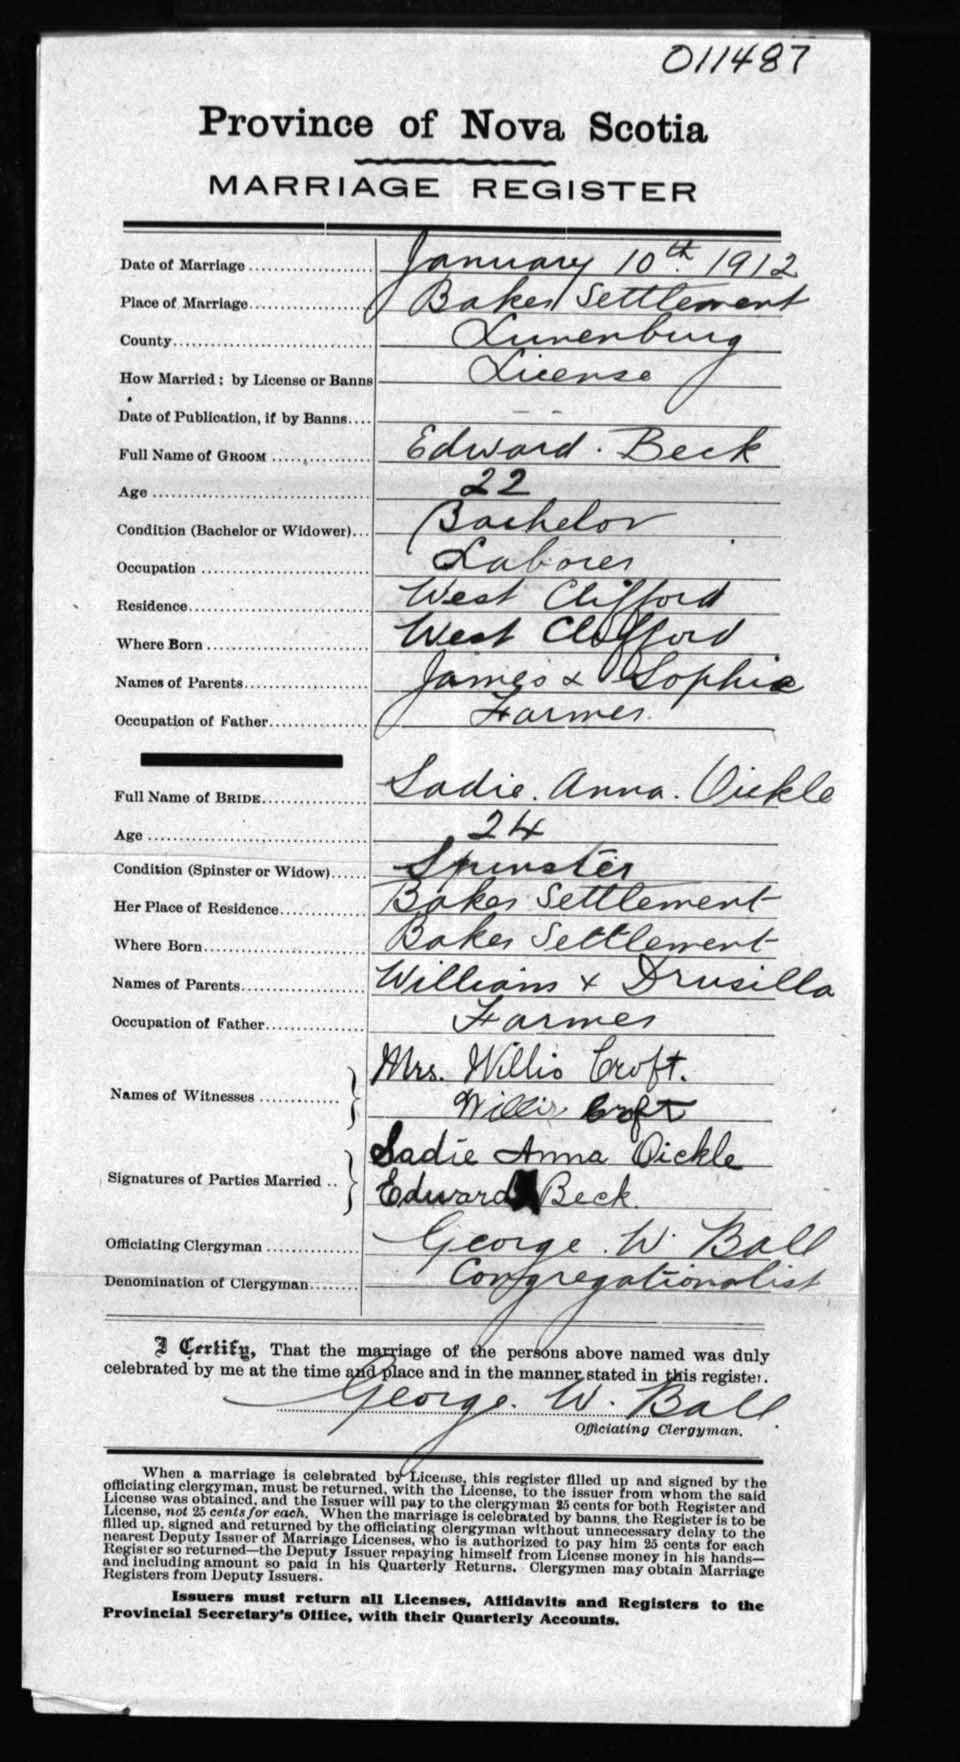 011487
Province of Nova Scotia
MARRIAGE REGISTER
Date of Marriage January 10th. 1912
Place of Marriage Baker Settlement
County Lunenburg
How Married; by License or Banns License
Date of Publication, if by Banns.... — —
Full Name of GROOM Edward. Beck
Age 22
Condition (Bachelor or Widower)... Bachelor
Occupation Laborer
Residence West Clifford
Where Born West Clifford
Names of Parents James & Sophia
Occupation of Father Farmer.
Full Name of BRIDE Sadie. Anna. Oickle
Age 24
Condition (Spinster or Widow) Spinster
Her Place of Residence Baker Settlement
Where Born Baker Settlement
Names of Parents William & Drusilla
Occupation of Father Farmer
Names of Witnesses Mrs. Willis Croft.
Willis Croft
Signatures of Parties Married .. Sadie Anna Oickle
Edward Beck.
Officiating Clergyman George. W. Ball
Denomination of Clergyman Congregationalist
I Certify, That the marriage of the persons above named was duly
celebrated by me at the time and place and in the manner stated in this register.
George. W. Ball
Officiating Clergyman.
When a marriage is celebrated by License, this register filled up and signed by the
officiating clergyman, must be returned, with the License, to the issuer from whom the said
License was obtained, and the Issuer will pay to the clergyman 25 cents for both Register and
License, not 25 cents for each. When the marriage is celebrated by banns, the Register is to be
filled up, signed and returned by the officiating clergyman without unnecessary delay to the
nearest Deputy Issuer of Marriage Licenses, who is authorized to pay him 25 cents for each
Register so returned—the Deputy Issuer repaying himself from License money in his hands—
and including amount so paid in his Quarterly Returns. Clergymen may obtain Marriage
Registers from Deputy Issuers.
Issuers must return all Licenses, Affidavits and Registers to the
Provincial Secretary's Office, with their Quarterly Accounts.